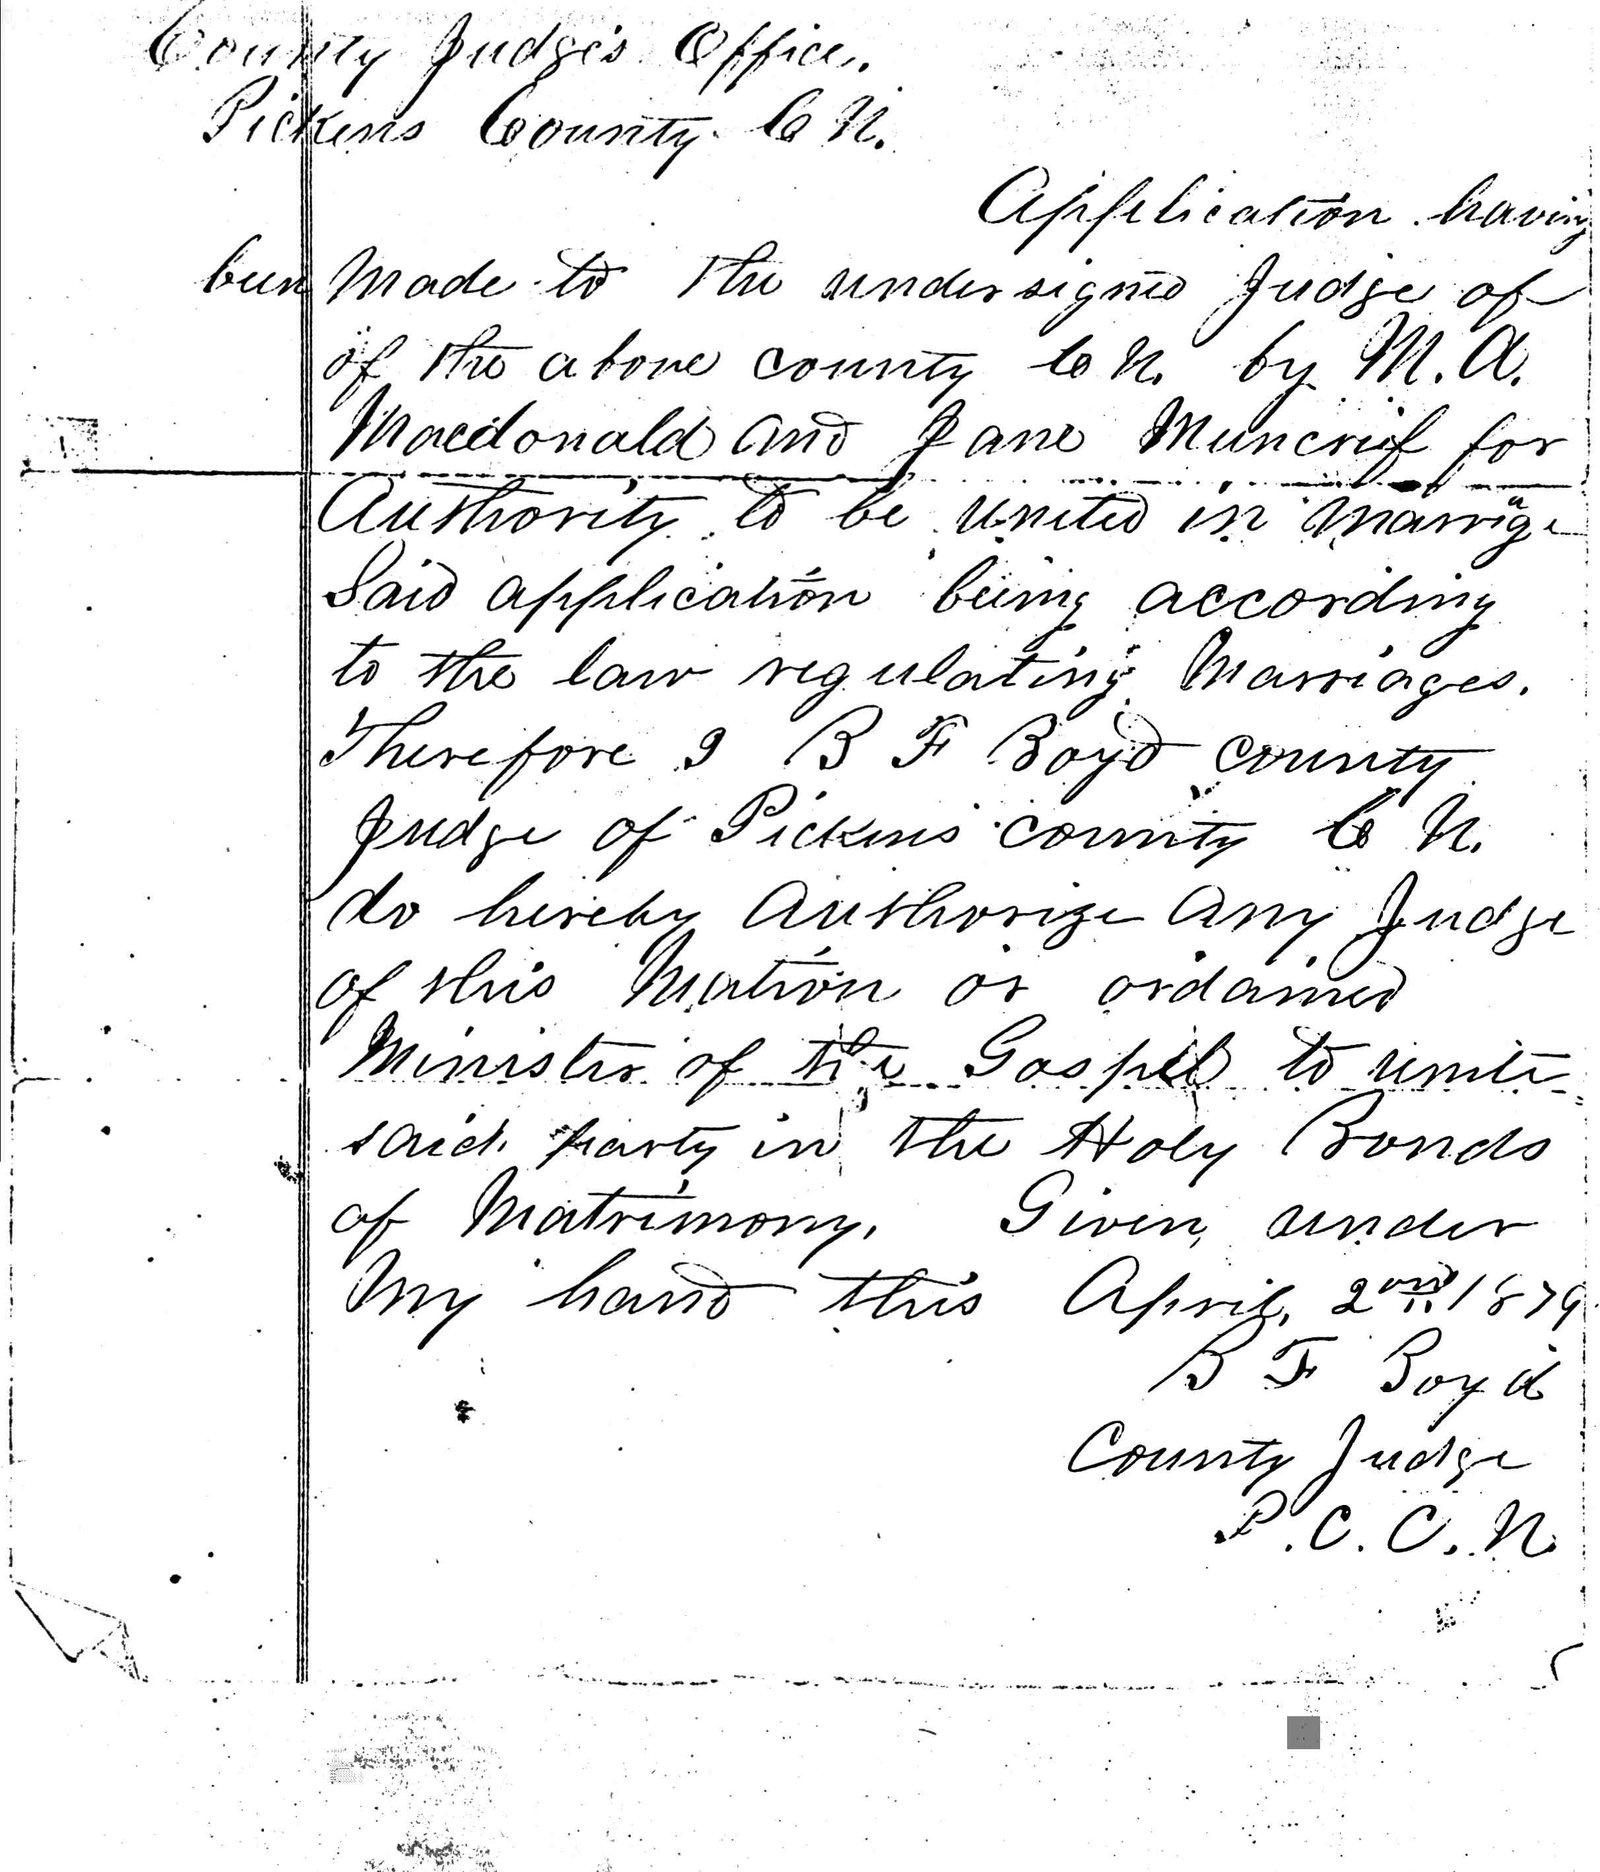 County Judge's Office.
Pickens County. C N.
Application having
been Made to the undersigned Judge of
of the above county C N. by M. A.
Macdonald and Jane Muncrief for
Authority to be united in Marrige
Said application being according
to the law regulating Marriages.
Therefore I B F Boyd county
Judge of Pickens county C N.
do hereby Authorize Any Judge
of this Nation or ordained
Minister of the Gospel to unite
said party in the Holy Bonds
of Matrimony. Given under
My hand this April, 2nd 1879
B F Boyd
County Judge
P. C. C. N.